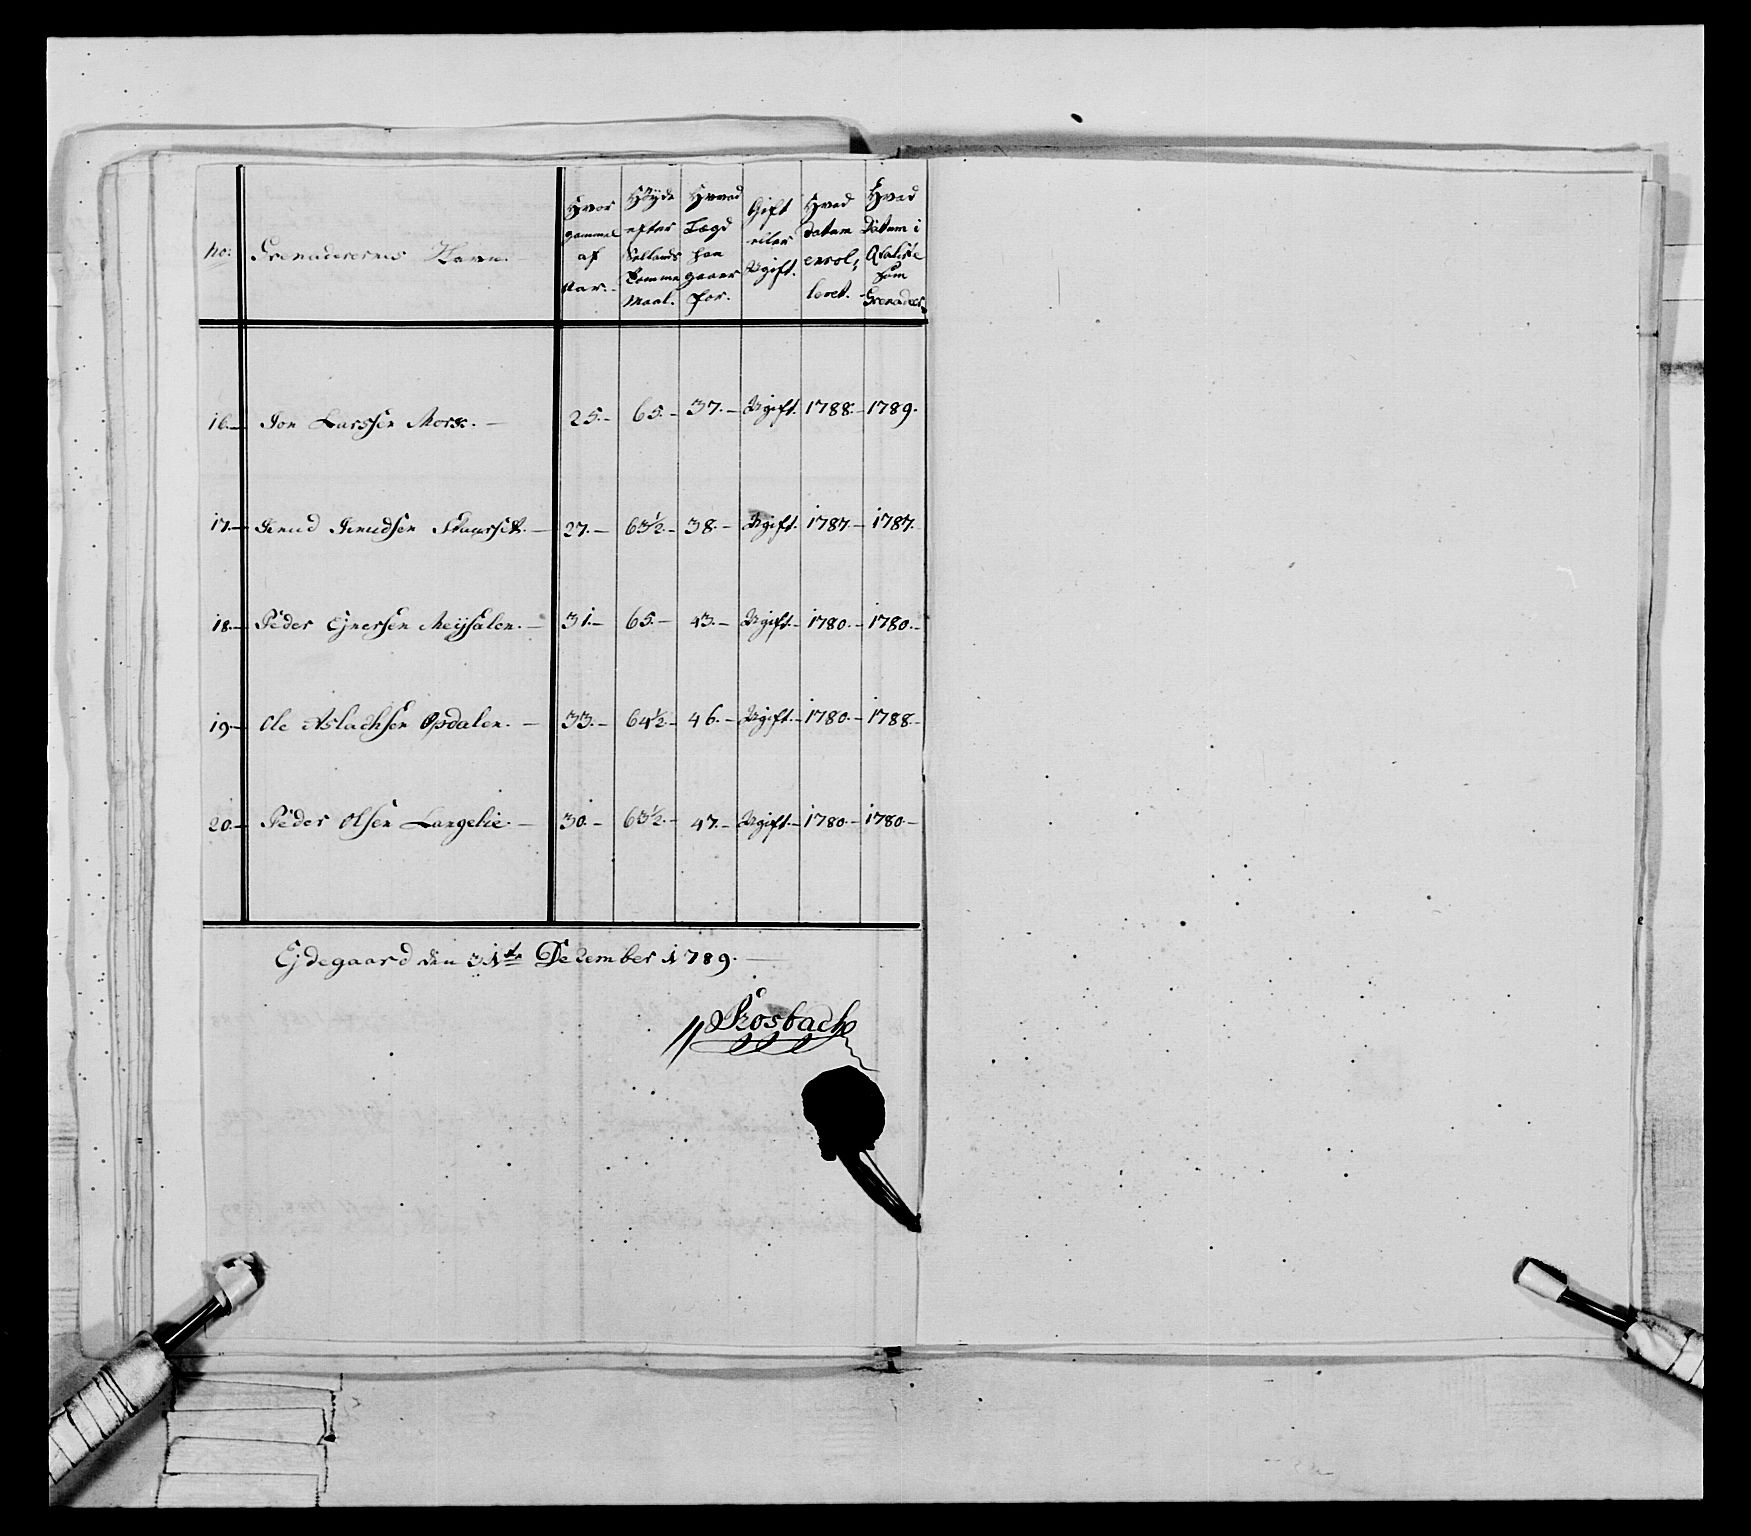 No: Grenaderernes Navne. Hvor gammel af Aar. Høyde efter Sellands Tomme Maal. Hvad Lægd han gaaer for. Gift eller Ugift. Hvad datum enrolleret. Hvad Datum i Qvalitè som Grenadeer.
16. Jon Larssen Morck. 25. 65. 37. Ugift. 1788. 1789.
17. Knud Knudsen Skaarset. 27. 63½. 38. Ugift. 1787. 1787.
18. Peder Ejnersen Meysalen. 31. 65. 43. Ugift. 1780. 1780.
19. Ole Aslachsen Opdalen. 33. 64½. 46. Ugift. 1780. 1788.
20. Peder Olsen Langelie. 30. 63½. 47. Ugift. 1780. 1780.
Ejdegaard den 31te December 1789.
Krosbach